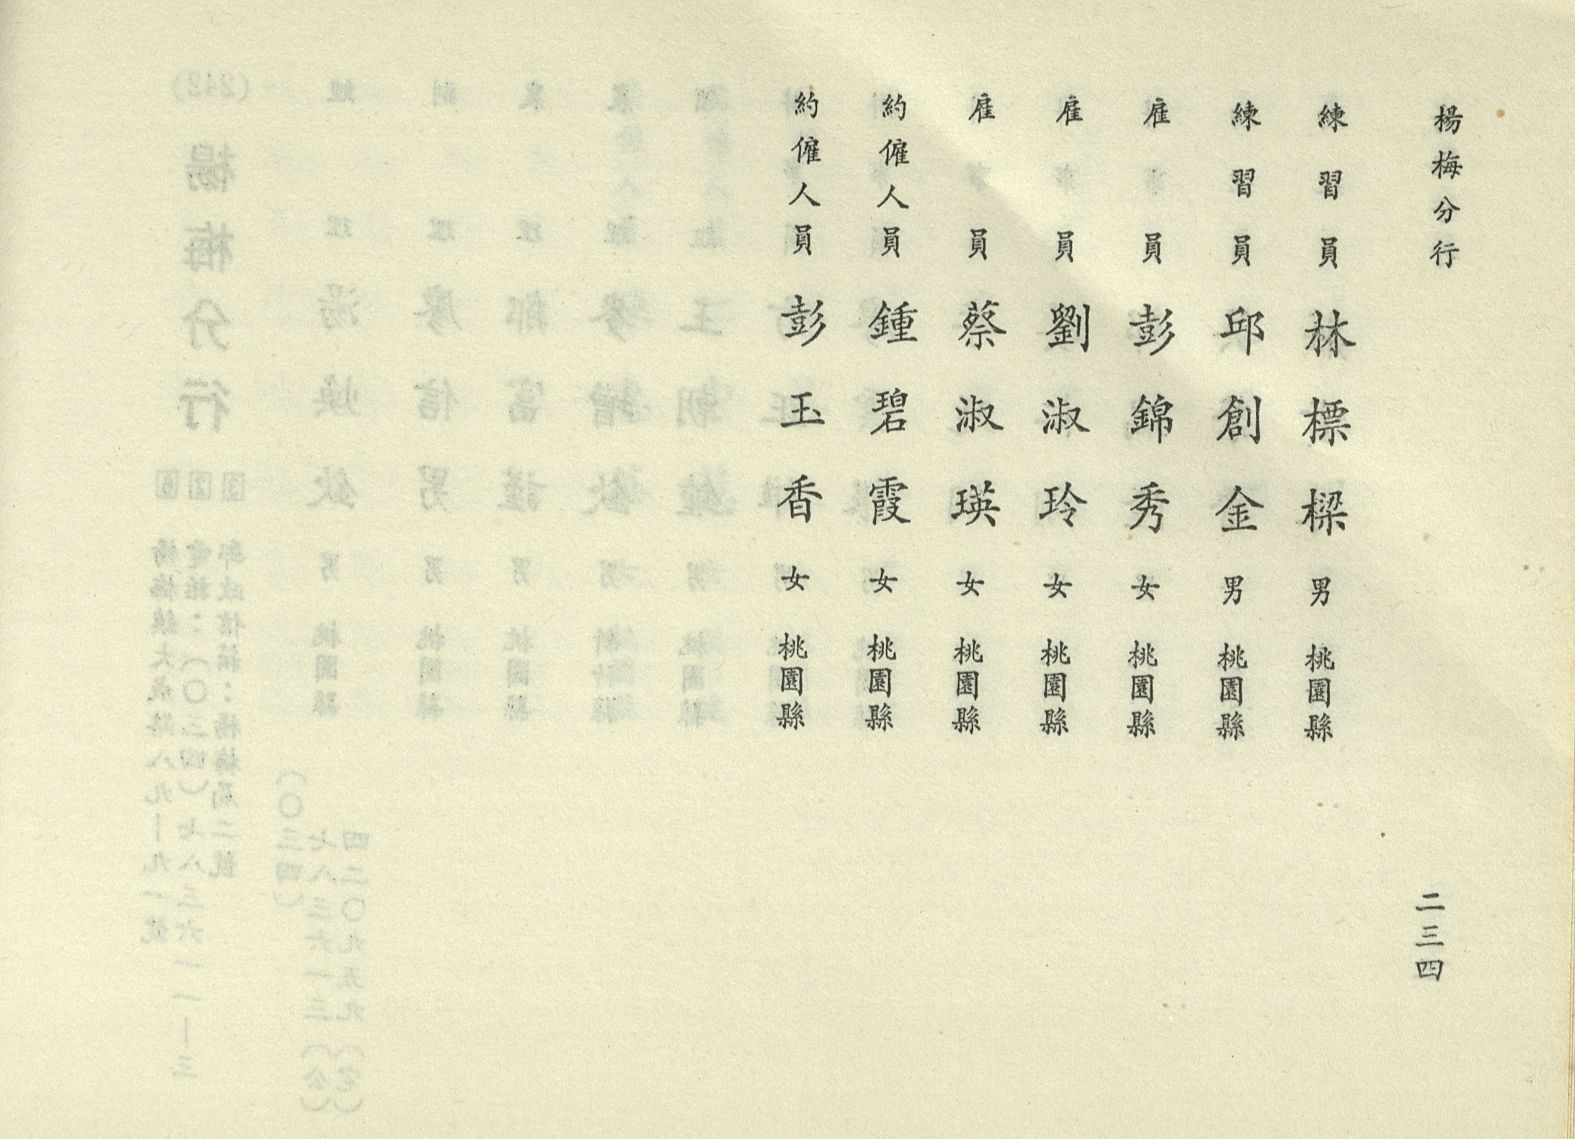 楊梅分行
二三四
練習員 林標樑 男 桃園縣
練習員 邱創金 男 桃園縣
雇員 彭錦秀 女 桃園縣
雇員 劉淑玲 女 桃園縣
雇員 蔡淑瑛 女 桃園縣
約僱人員 鍾碧霞 女 桃園縣
約僱人員 彭玉香 女 桃園縣